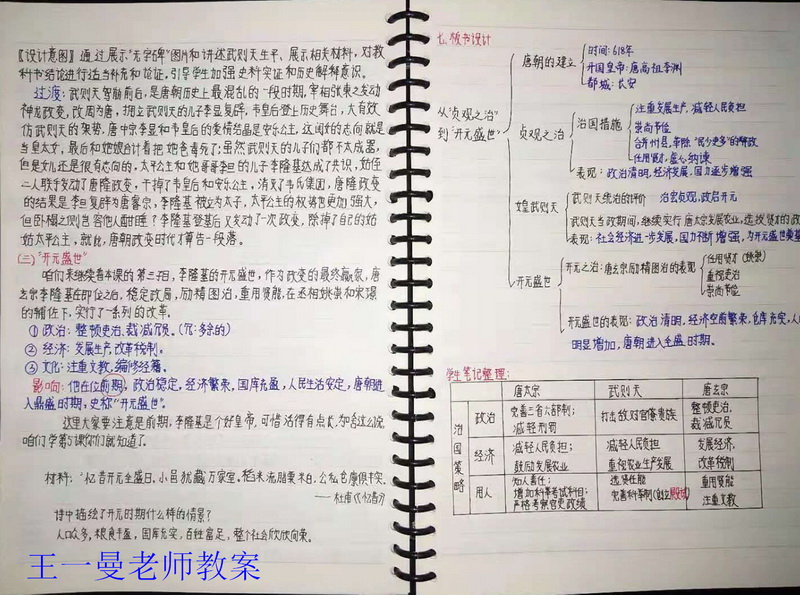 【设计意图】通过展示"无字碑"图片和讲述武则天生平、展示相关材料,对教
科书结论进行适当补充和论证,引导学生加强史料实证和历史解释意识。
过渡:武则天驾崩前后,是唐朝历史上最混乱的一段时期,宰相张柬之发动
神龙政变,改周为唐,拥立武则天的儿子李显复辟,韦皇后登上历史舞台,大有效
仿武则天的架势,唐中宗李显和韦皇后的爱情结晶是安乐公主,这闺女的志向就是
当皇太女,最后和她娘合计着把她爸毒死了;虽然武则天的儿子们都不太成器,
但是女儿还是很有志向的,太平公主和她哥哥李旦的儿子李隆基达成了共识,姑侄
二人联手发动了唐隆政变,干掉了韦皇后和安乐公主,消灭了韦氏集团,唐隆政变
的结果是李旦复辟为唐睿宗,李隆基被立为太子,太平公主的权势也更加强大,
但卧榻之侧岂容他人酣睡?李隆基登基后又发动了一次政变,除掉了自己的姑
姑太平公主,就此,唐朝政变时代才算告一段落。
(三)"开元盛世"
咱们来继续看本课的第三子目,李隆基的开元盛世,作为政变的最终赢家,唐
玄宗李隆基在即位之后,稳定政局,励精图治,重用贤能,在丞相姚崇和宋璟
的辅佐下,实行了一系列的改革。
① 政治:整顿吏治,裁减冗员。(冗:多余的)
② 经济:发展生产,改革税制。
③ 文化:注重文教,编修经籍。
影响:他在位前期,政治稳定,经济繁荣,国库充盈,人民生活安定,唐朝进
入鼎盛时期,史称"开元盛世"。
这里大家要注意是前期,李隆基是个好皇帝,可惜活得有点长,为啥这么说,
咱们学第5课你们就知道了。
材料:忆昔开元全盛日,小邑犹藏万家室,稻米流脂粟米白,公私仓廪俱丰实。
——杜甫《忆昔》
诗中描绘了开元时期什么样的情景?
人口众多,粮食丰盈,国库充实,百姓富足,整个社会欣欣向荣。
王一曼老师教案
七、板书设计
从"贞观之治"
到"开元盛世"
唐朝的建立
时间:618年
开国皇帝:唐高祖李渊
都城:长安
贞观之治
治国措施
注重发展生产,减轻人民负担
崇尚节俭
合并州县,革除"民少吏多"的弊政
任用贤才,虚心纳谏
表现:政治清明,经济发展,国力逐步增强
女皇武则天
武则天统治的评价 治宏贞观,政启开元
武则天当政期间,继续实行唐太宗发展农业,选拔贤才的政
表现:社会经济进一步发展,国力不断增强,为开元盛世奠基
开元盛世
开元之治:唐玄宗励精图治的表现
任用贤才(姚崇)
重视吏治
崇尚节俭
开元盛世的表现:政治清明,经济空前繁荣,仓库充实,人口
明显增加,唐朝进入全盛时期。
学生笔记整理:
唐太宗 武则天 唐玄宗
治国策略
政治 完善三省六部制;减轻刑罚 打击敌对官僚贵族 整顿吏治,裁减冗员
经济 减轻人民负担;鼓励发展农业 减轻人民负担 重视农业生产发展 发展经济,改革税制
用人 知人善任;增加科举考试科目;严格考察官吏政绩 选贤任能 完善科举制(创立殿试) 重用贤能 注重文教